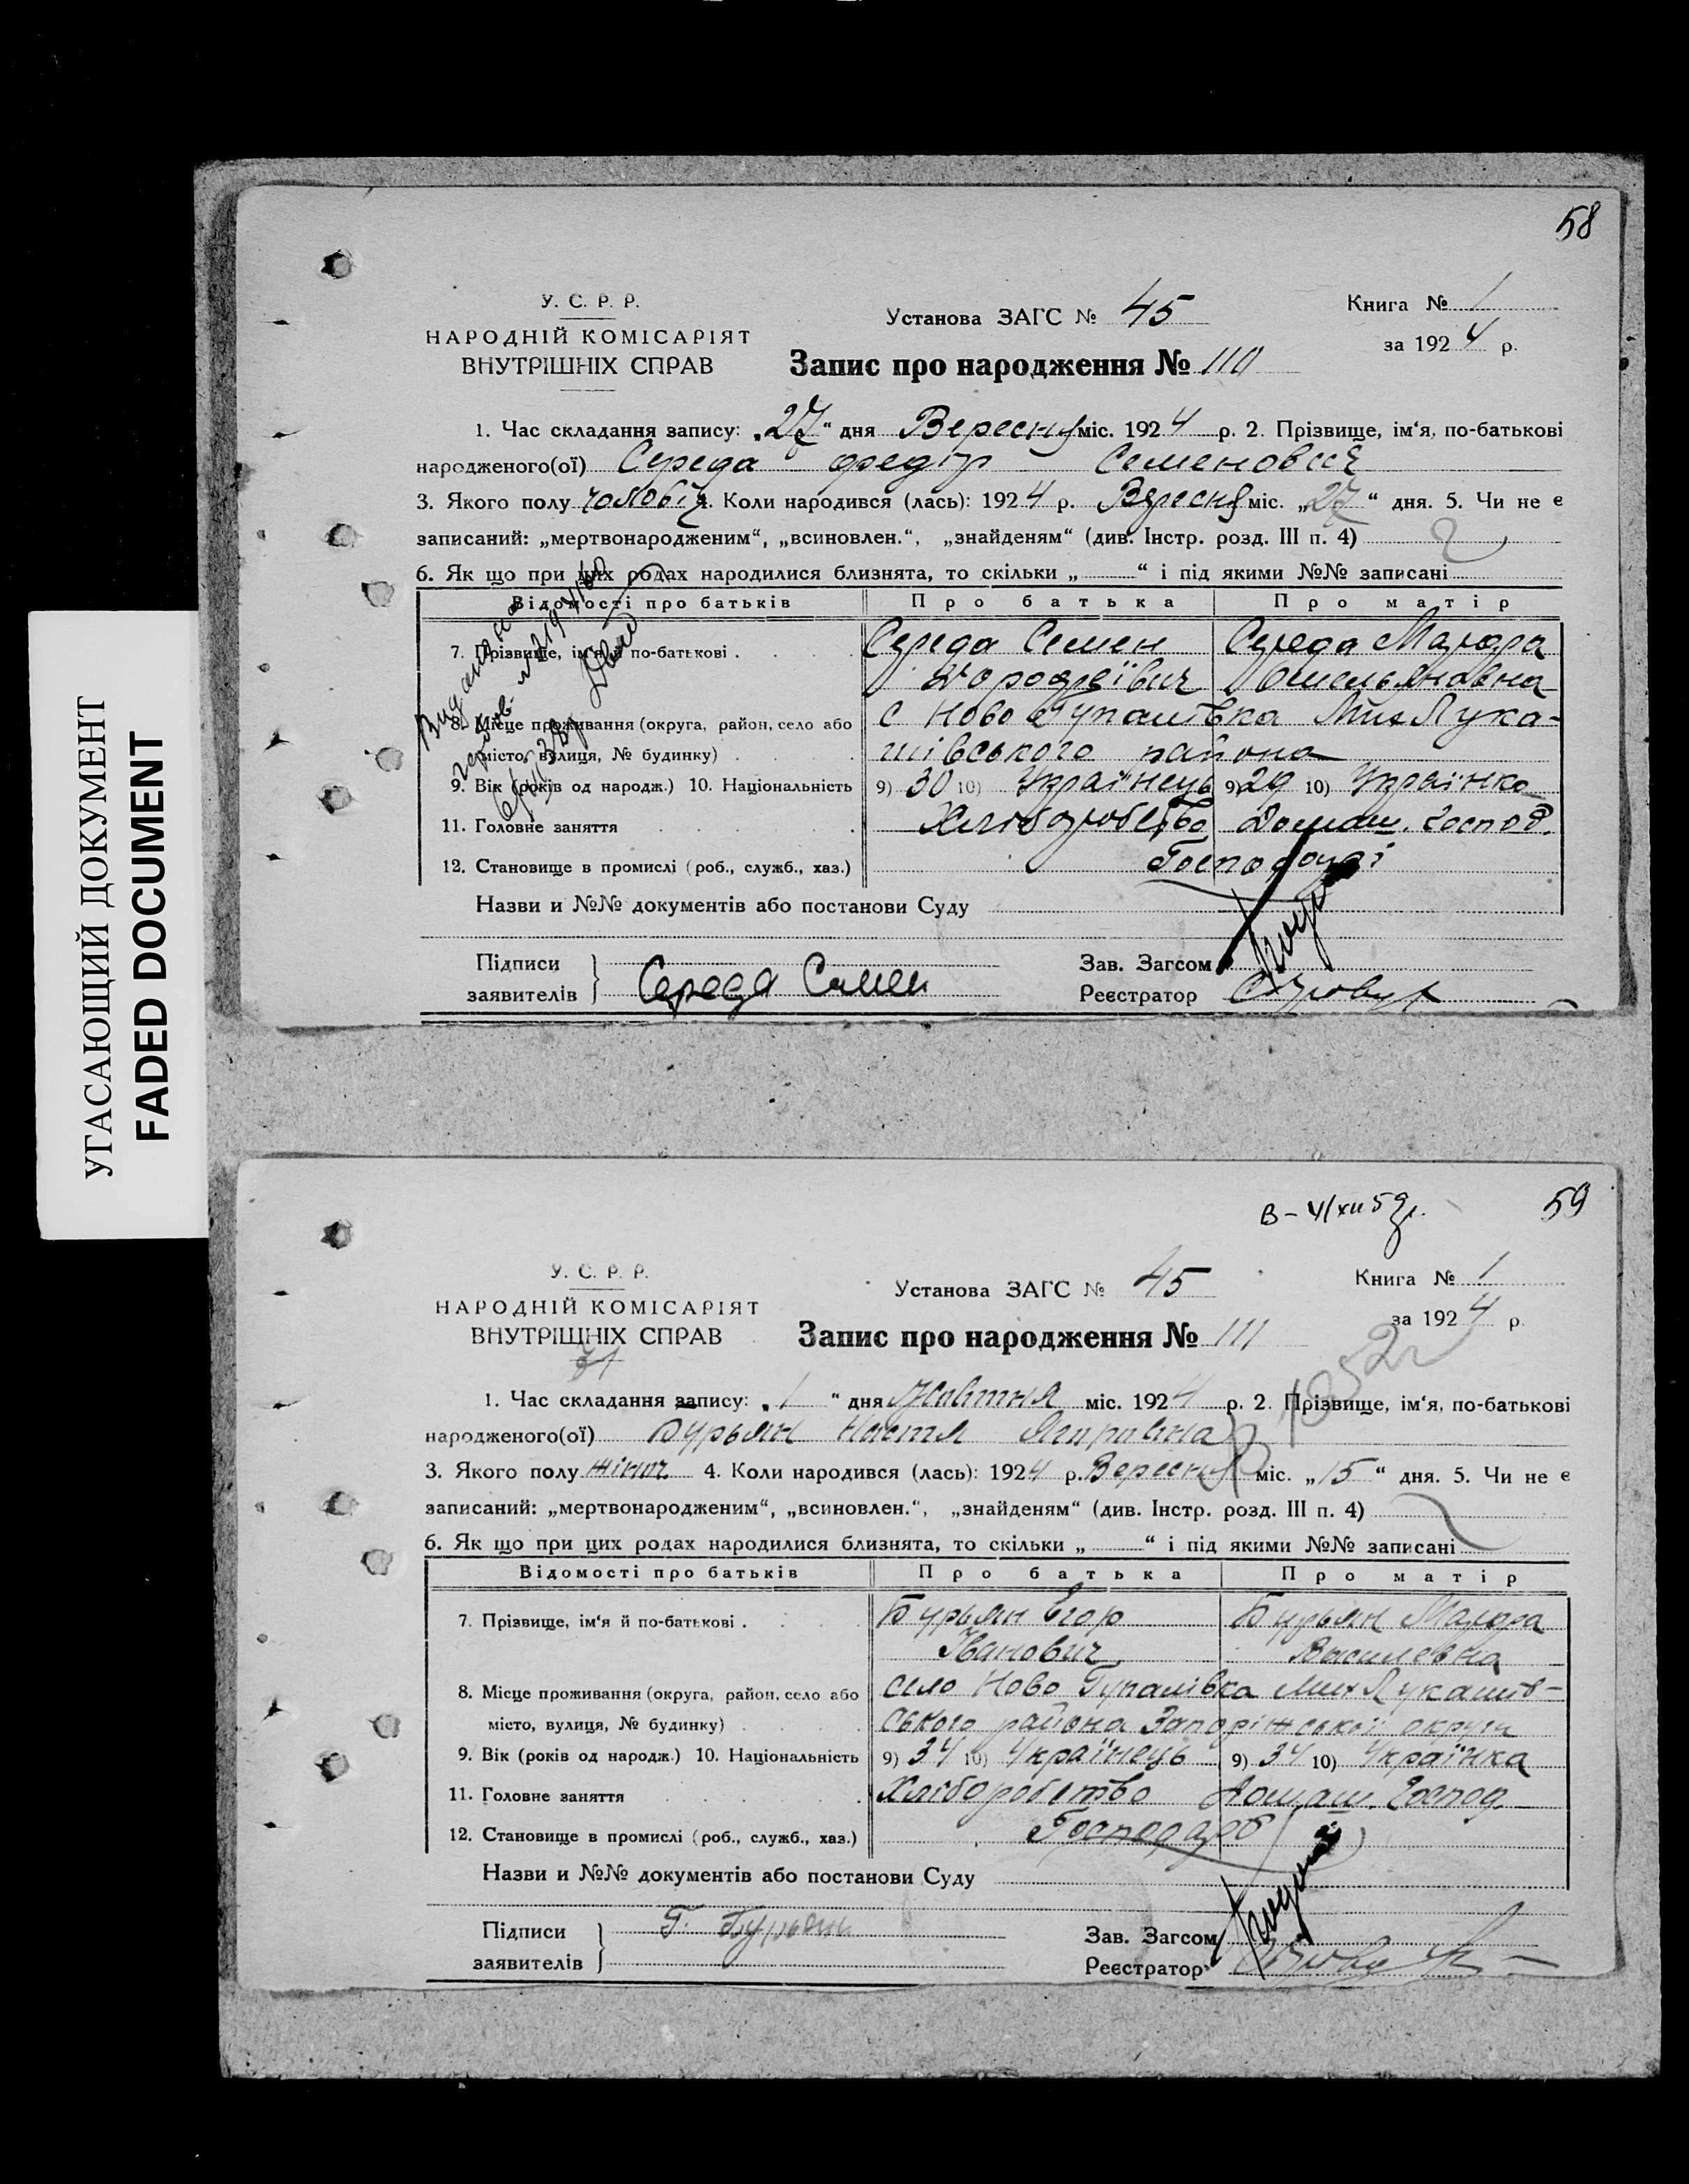 УГАСАЮЩИЙ ДОКУМЕНТ
FADED DOCUMENT
58
У. С. Р. Р.
НАРОДНІЙ КОМІСАРІЯТ
ВНУТРІШНІХ СПРАВ
Установа ЗАГС № 45
Книга № 1
за 1924 р.
Запис про народження № 110
1. Час складання запису: „27“ дня Вересня міс. 1924 р. 2. Прізвище, ім‘я, по-батькові
народженого(ої) Середа Федір Семенович
3. Якого полу чоловіч. 4. Коли народився (лась): 1924 р. Вересня міс. „27“ дня. 5. Чи не є
записаний: „мертвонародженим“, „всиновлен.“, „знайденям“ (див. Інстр. розд. III п. 4)
6. Як що при цих родах народилися близнята, то скільки „ “ і під якими №№ записані
Відомості про батьків Про батька Про матір
7. Прізвище, ім‘я й по-батькові . Середа Семен Середа Марфра
Дорофеївич Омельяновна
8. Місце проживання (округа, район, село або с Ново Гупалівка Мих Лука-
місто, вулиця, № будинку) шівського района
9. Вік (років од народж.) 10. Національність 9) 30 10) Українець 9) 29 10) Українка
11. Головне заняття Хліборобство Домаш. Господ.
12. Становище в промислі (роб., служб., хаз.) Господарі
Назви и №№ документів або постанови Суду
Підписи
заявителів } Середа Семен
Зав. Загсом
Реєстратор
В – 4/XII 59 г.
59
У. С. Р. Р.
НАРОДНІЙ КОМІСАРІЯТ
ВНУТРІШНІХ СПРАВ
Установа ЗАГС № 45
Книга № 1
за 1924 р.
Запис про народження № 111
1. Час складання запису: „1“ дня Жовтня міс. 1924 р. 2. Прізвище, ім‘я, по-батькові
народженого(ої) Бурьян Настя
3. Якого полу жіноч. 4. Коли народився (лась): 1924 р. Вересня міс. „15“ дня. 5. Чи не є
записаний: „мертвонародженим“, „всиновлен.“, „знайденям“ (див. Інстр. розд. III п. 4)
6. Як що при цих родах народилися близнята, то скільки „ “ і під якими №№ записані
Відомості про батьків Про батька Про матір
7. Прізвище, ім‘я й по-батькові . Бурьян Єгор Бурьян Марфра
Іванович Василевна
8. Місце проживання (округа, район, село або село Ново Гупалівка Мих Лукашів-
місто, вулиця, № будинку) ського района Запоріжської округи
9. Вік (років од народж.) 10. Національність 9) 34 10) Українець 9) 34 10) Українка
11. Головне заняття Хліборобство Домаш. Господ.
12. Становище в промислі (роб., служб., хаз.) Господарі
Назви и №№ документів або постанови Суду
Підписи
заявителів } Г. Бурьян
Зав. Загсом
Реєстратор